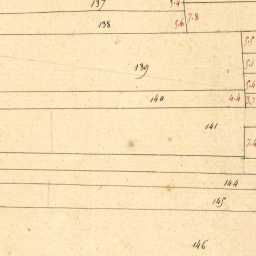 137 5.4
138 5.6 7.8
5.5
139 5.1
5.4
140 4.4 3.7
141
7.4
144
145
146